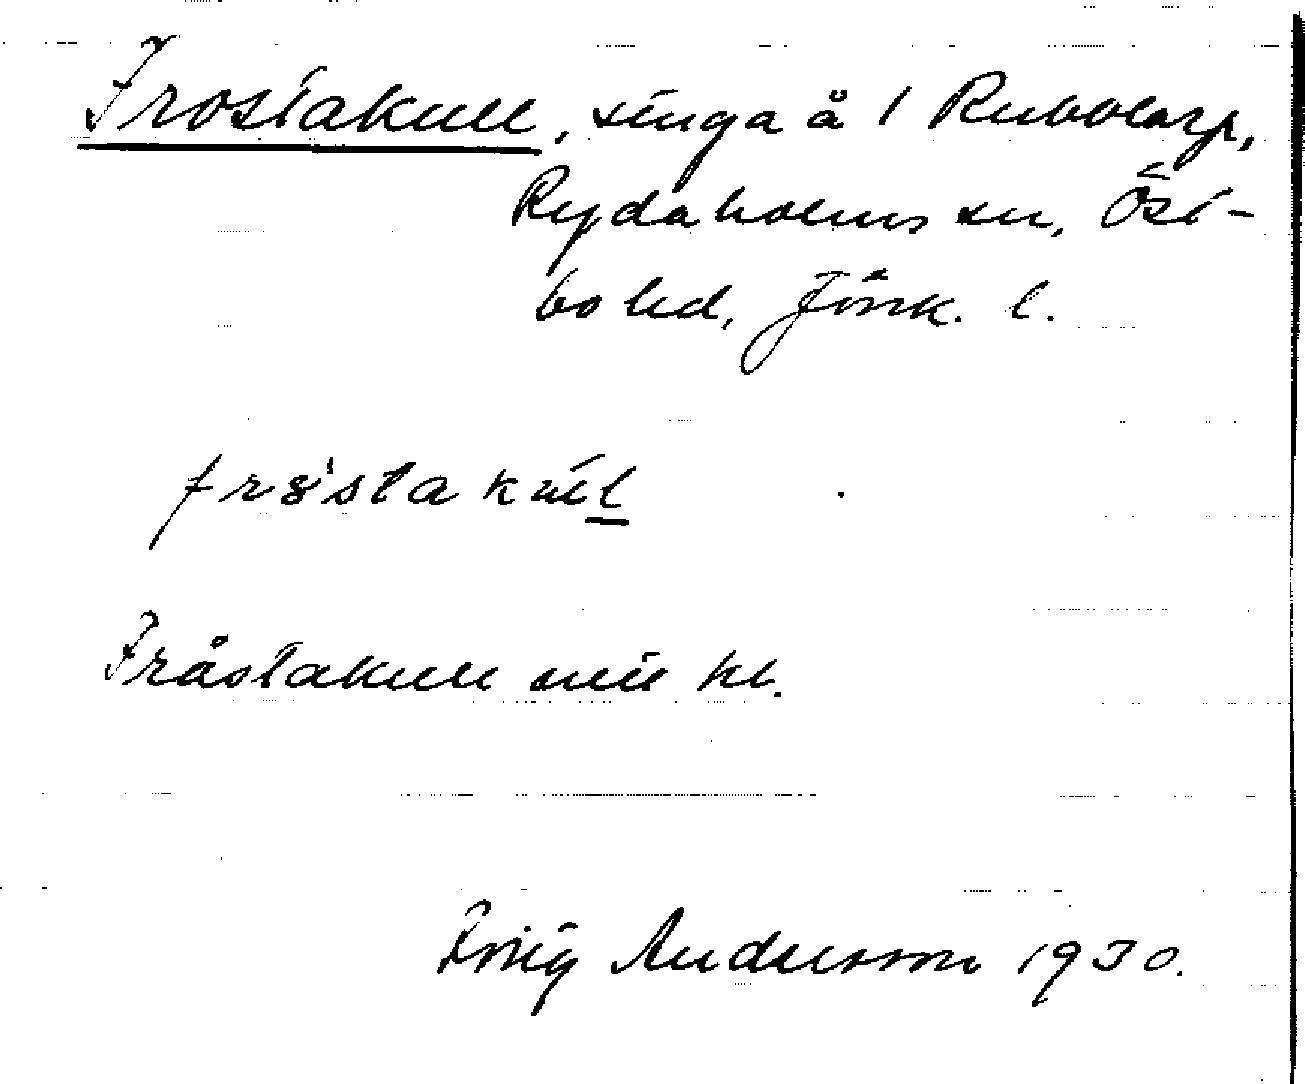 Frostakull, stuga å 1 Rubbtarp,
Rydaholms sn, Öst-
bo hd, Jönk. l.
frɵ'sta kul
Fråstakull mtl kl.
Andersson 1930.